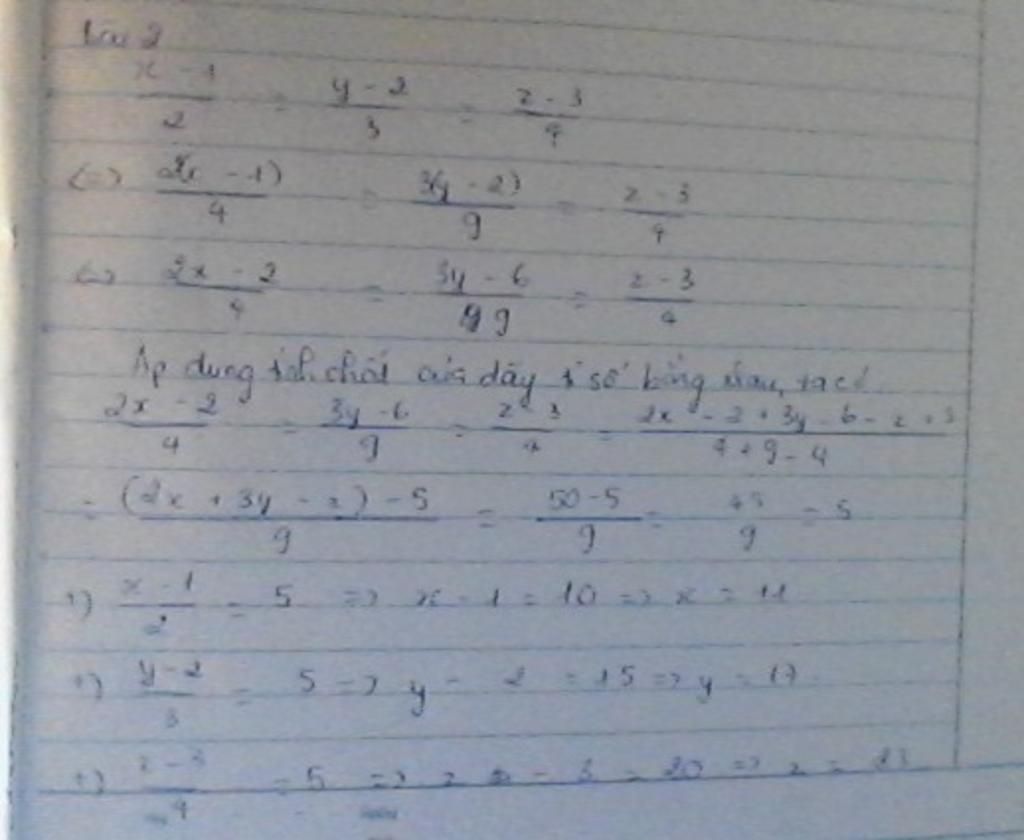 Bài 2
x - 1 / 2 = y - 2 / 3 = z - 3 / 4
<=> 2(x - 1) / 4 = 3(y - 2) / 9 = z - 3 / 4
<=> 2x - 2 / 4 = 3y - 6 / 9 = z - 3 / 4
Áp dụng tính chất của dãy tỉ số bằng nhau, ta có
2x - 2 / 4 = 3y - 6 / 9 = z - 3 / 4 = 2x - 2 + 3y - 6 - z + 3 / 4 + 9 - 4
= (2x + 3y - z) - 5 / 9 = 50 - 5 / 9 = 45 / 9 = 5
+) x - 1 / 2 = 5 => x - 1 = 10 => x = 11
+) y - 2 / 3 = 5 => y - 2 = 15 => y = 17
+) z - 3 / 4 = 5 => z - 3 = 20 => z = 23